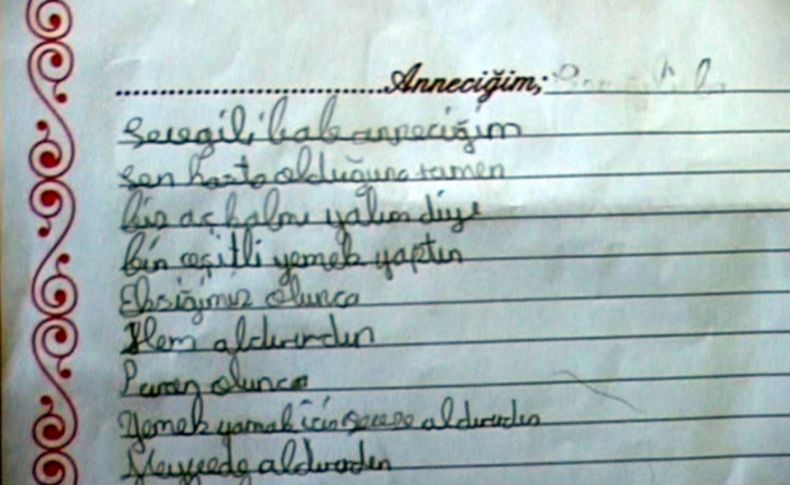 Anneciğim;
sevgili bab anneciğim
sen hasta olduğuna ramen
biz aç kalmı yalım diye
bin çeşitli yemek yaptın
Eksiğimiz olunca
Hem aldırırdın
Paran olunca
Yemek yamak için aldırırdın
Meyvede aldırırdın